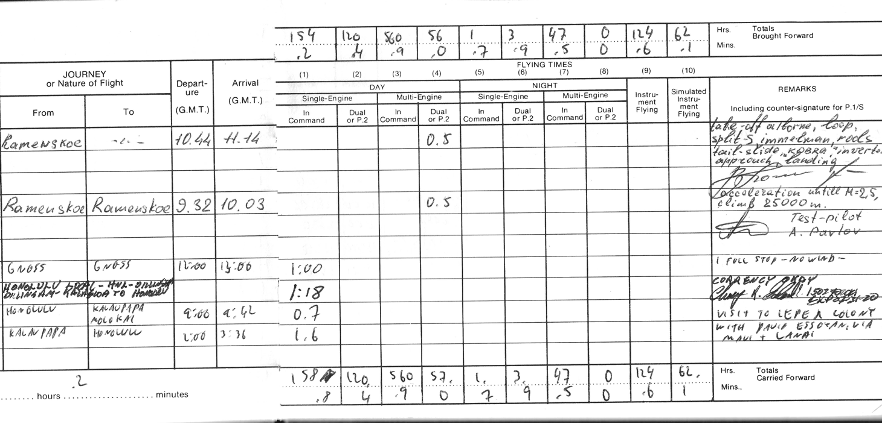 154 120 560 56 1 3 47 0 124 62 Hrs. Totals
Brought Forward
.2 .4 .9 .0 .7 .9 .5 0 .6 .1 Mins.
JOURNEY
or Nature of Flight
Depart-
ure
(G.M.T.)
Arrival
(G.M.T.)
FLYING TIMES
(1) (2) (3) (4) (5) (6) (7) (8) (9) (10)
DAY NIGHT
Single-Engine Multi-Engine Single-Engine Multi-Engine
Instru-
ment
Flying
Simulated
Instru-
ment
Flying
REMARKS
From To
In
Command
Dual
or P.2
In
Command
Dual
or P.2
In
Command
Dual
or P.2
In
Command
Dual
or P.2
Including counter-signature for P.1/S
Ramenskoe -"- 10.44 11.14 0.5
take-off airborne, loop,
split-S immelman,
tail-slide, KOBRA,
approach, landing
Ramenskoe Ramenskoe 9.32 10.03 0.5
acceleration untill M=2,5,
climb 25000 m.
Test-pilot
A. Pavlov
GNOSS GNOSS 12:00 13:00 1:00 1 FULL STOP - NO WIND -
HONOLULU - HNL -
TO HONOLULU
1:18
CURRENCY
HONOLULU KALAUPAPA
MOLOKAI
9:00 9:42 0.7 VISIT TO LEPER COLONY
KALAUPAPA HONOLULU 2:00 3:36 1.6 WITH DAVID VIA
MAUI + LANAI
.2
hours minutes
158 120. 560 57. 1. 3. 47 0 124 62. Hrs. Totals
Carried Forward
.8 4 .9 0 7 9 .5 0 .6 1 Mins.